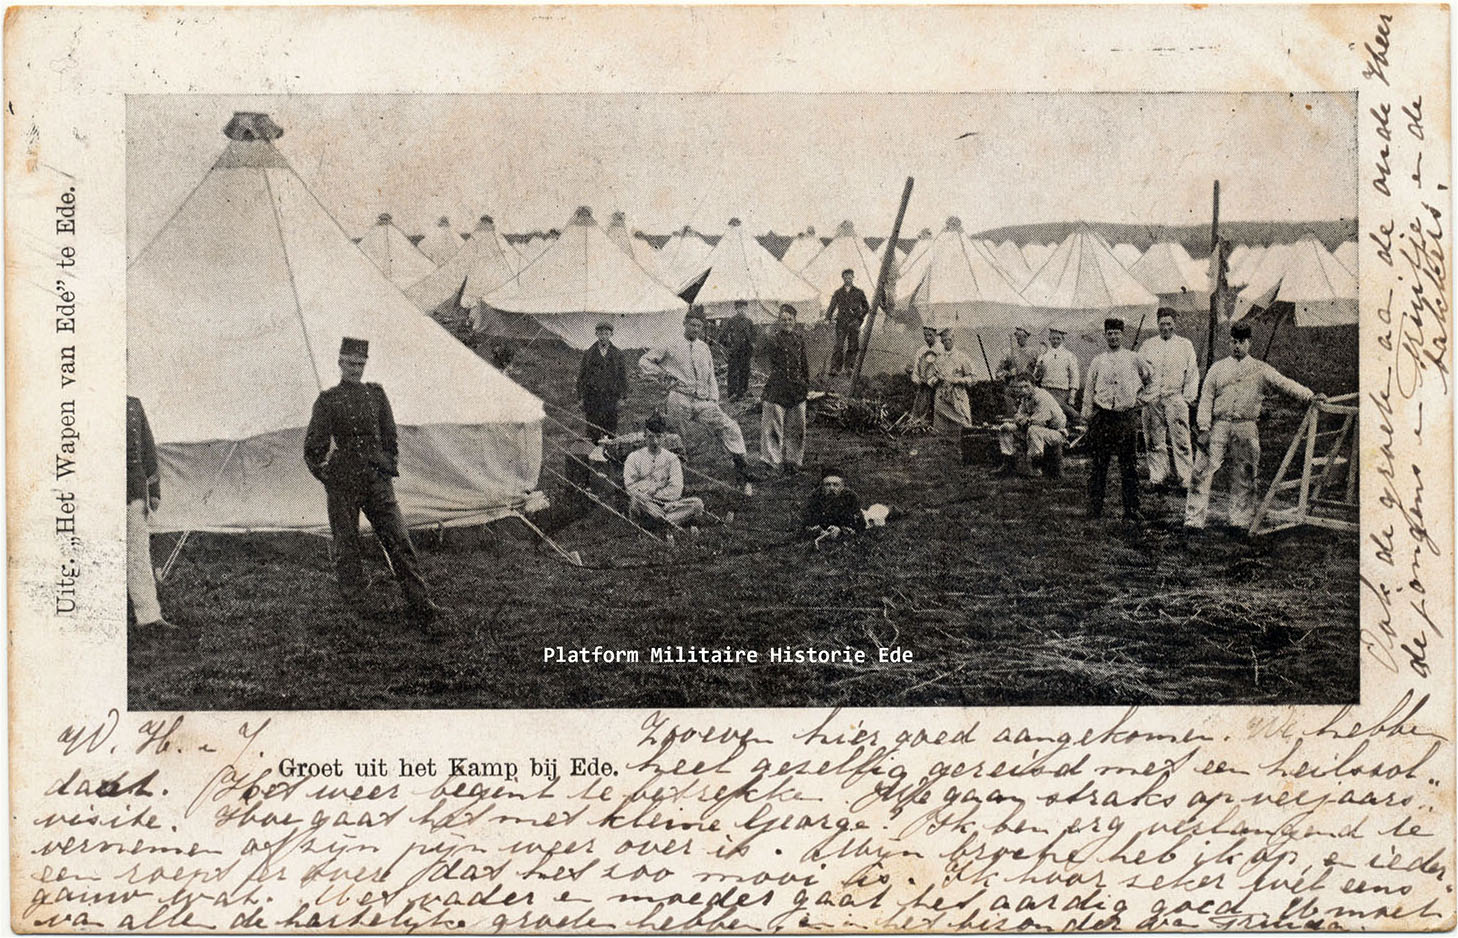 Uitg. „Het Wapen van Ede” te Ede.
Platform Militaire Historie Ede
W. H. J.
Groet uit het Kamp bij Ede.
Zooeven hier goed aangekomen. We hebben
heel gezellig gereisd met een heilssol-
daat. Het weer begint te betrekke. We gaan straks op verjaars-
visite. Hoe gaat het met kleine George? Ik ben erg verlangend te
vernemen of zijn pijn weer over is. Mijn broche heb ik op, en ieder-
een roept er over dat het zoo mooi is. Ik hoor zeker wel eens
gauw wat. Met vader en moeder gaat het aardig goed. U moet
van allen de hartelijke groeten hebben, en in het bizonder van
Ook de groeten aan de oude Heer
de jongens en en de
bakkers.